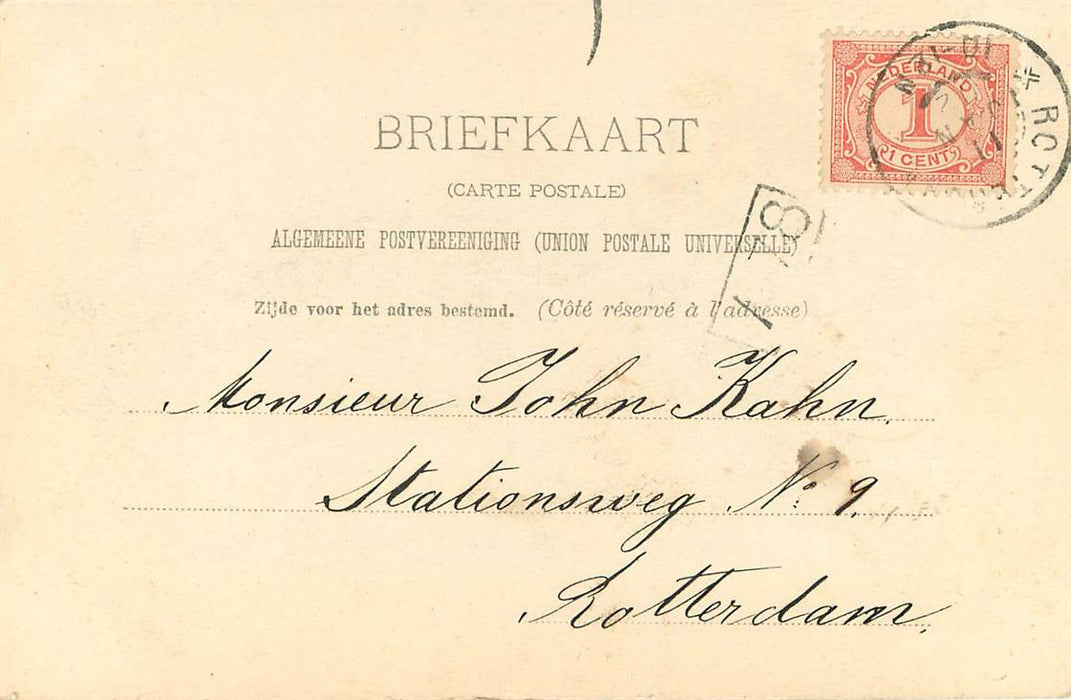 BRIEFKAART
(CARTE POSTALE)
ALGEMEENE POSTVEREENIGING (UNION POSTALE UNIVERSELLE)
Zijde voor het adres bestemd. (Côté réservé à l'adresse)
NEDERLAND
1
1 CENT
8
Monsieur John Kahn.
Stationsweg No 9.
Rotterdam.